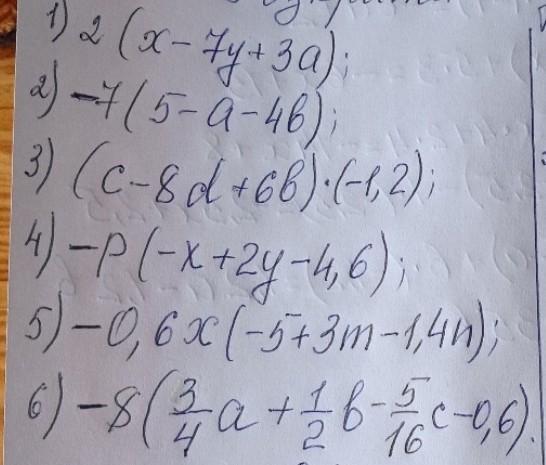 1) 2 (x - 7y + 3a);
2) -7 (5 - a - 4b);
3) (c - 8d + 6b) · (-1,2);
4) -p (-x + 2y - 4,6);
5) -0,6x (-5 + 3m - 1,4n);
6) -8 (3/4 a + 1/2 b - 5/16 c - 0,6).